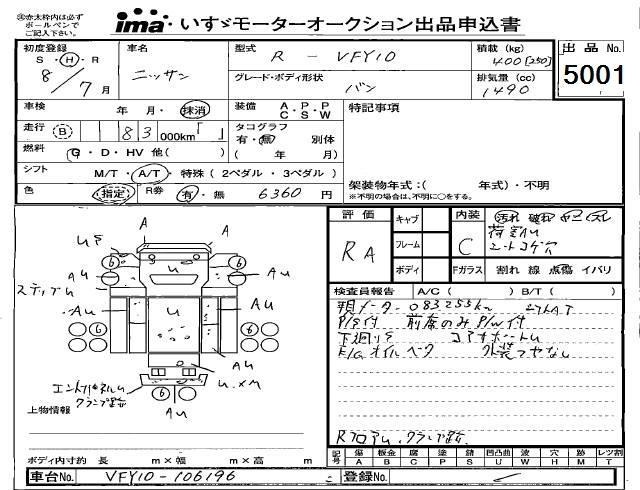 ㊟赤太枠内は必ず
ボールペンで
ご記入下さい。
ima いすゞモーターオークション出品申込書
初度登録
S・H・R
8/7月
車名
ニッサン
型式
R - VFY10
積載(kg)
400[250]
グレード・ボディ形状
バン
排気量(cc)
1490
出品No.
5001
車検 年 月・抹消
装備 A・P・P
C S W
特記事項
走行 B 83 000km「 」
タコグラフ
有・無 別体
( 年 月)
燃料 G・D・HV 他( )
シフト M/T・A/T・特殊(2ペダル・3ペダル)
架装物年式:( 年式)・不明
※不明の場合は、不明に○をする。
色 (指定) R券 有・無 6360 円
評価
RA
キャブ
フレーム
ボディ
内装
C
汚れ 破れ
荷室AU
シートコゲ穴
Fガラス 割れ 線 点傷 イバリ
検査員報告 A/C( ) B/T( )
現メーター083255km
P/S付 前席のみP/W付
下廻りS コアサポートU
E/Gオイルベーク 外装ツヤなし
RフロアU、クランプ跡
A
US
A
6
6
AU
AU
U
ステップU
AU
U
AU
6
6
A
U
U、XM
6
AU
クランプ跡
上物情報
ボディ内寸約 長 m×幅 m×高 m
記号 傷 板金 腐 塗 錆 凹凸曲 波 穴 跡 レツ割
A B C P S U W H M T
車台No. VFY10-106196
登録No.